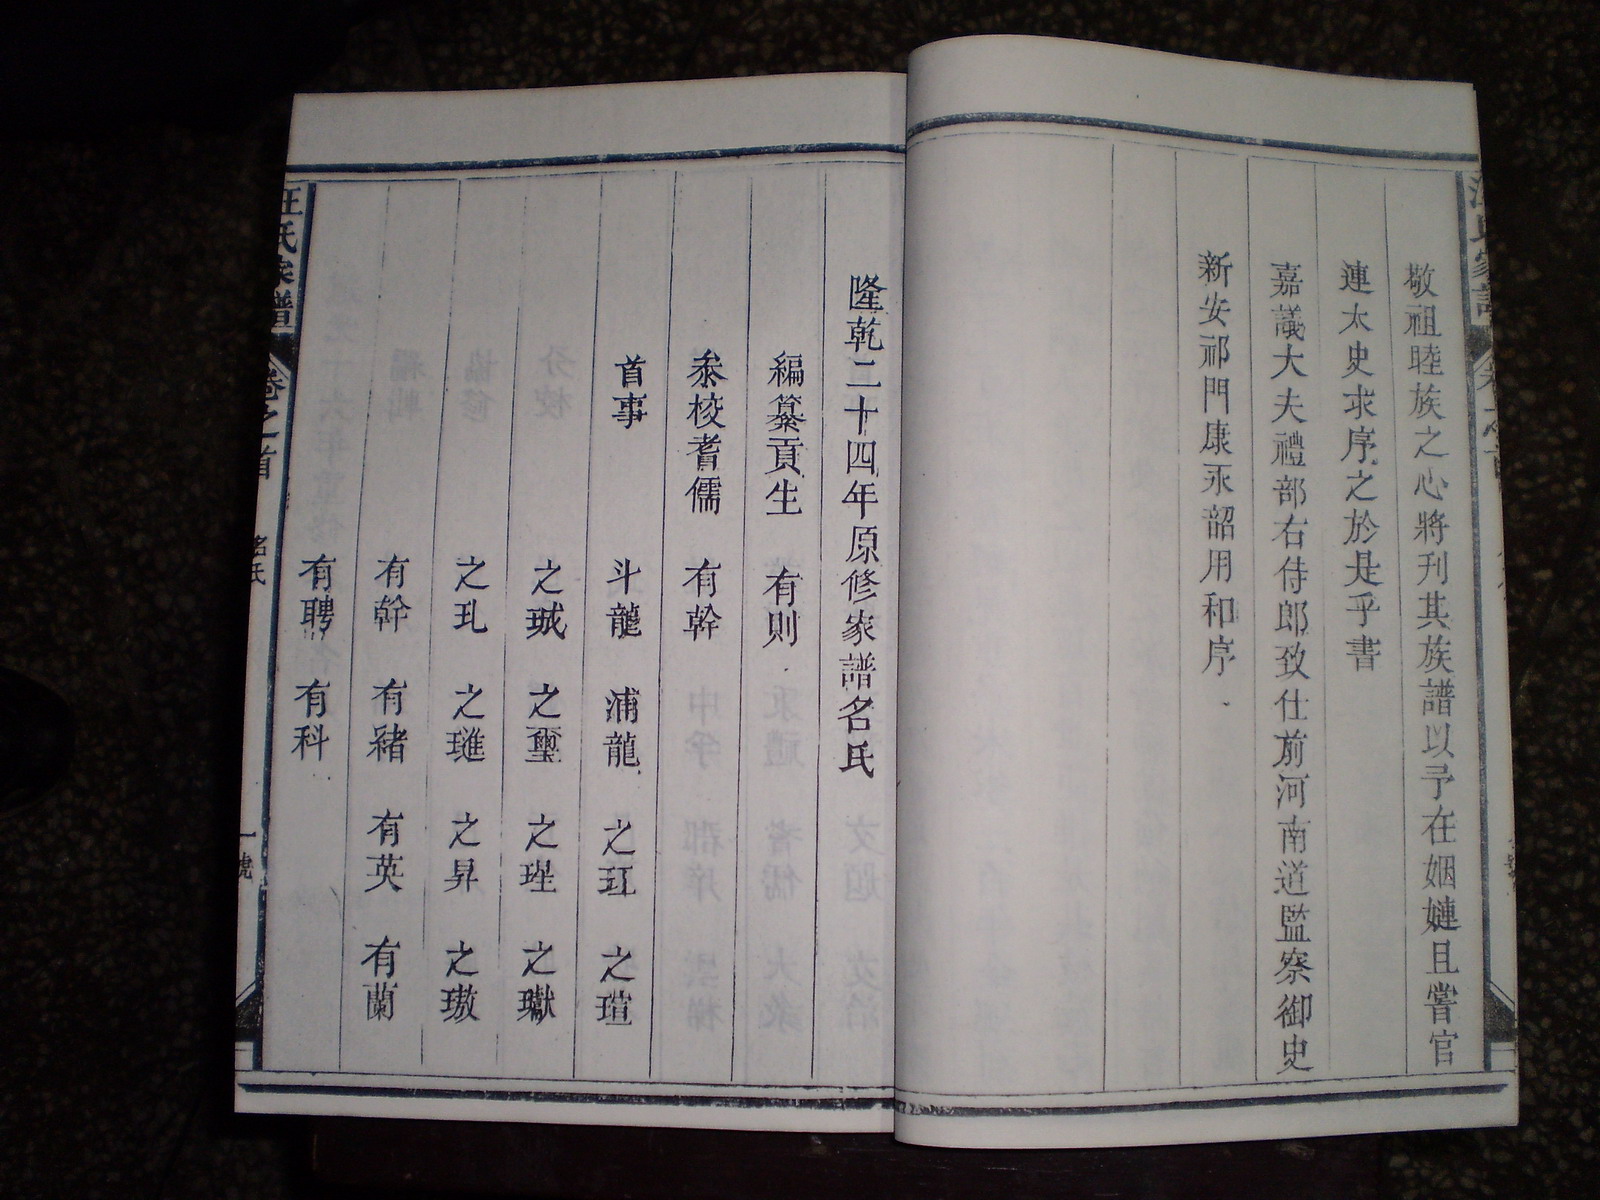 敬祖睦族之心將刊其族譜以予在姻婕且嘗官
連太史求序之於是乎書
嘉議大夫禮部右侍郎致仕前河南道監察御史
新安祁門康永韶用和序
隆乾二十四年原修家譜名氏
編纂貢生 有則
叅校耆儒 有幹
首事 斗龍 浦龍 之玒 之瑄
之珹 之璽 之瑆 之瓛
之玌 之璡 之昇 之璈
有幹 有緒 有英 有蘭
有聘 有科
汪氏家譜 卷之首 名氏 一號